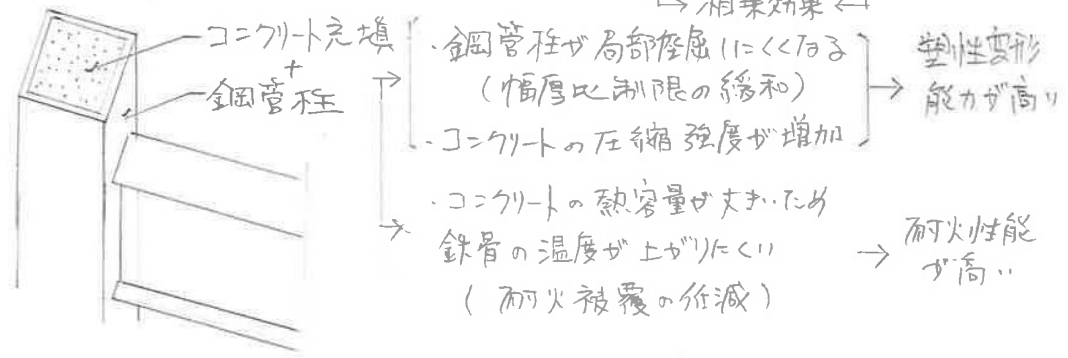 相乗効果
コンクリート充填
+
鋼管柱
・鋼管柱が局部座屈しにくくなる
(幅厚比制限の緩和)
・コンクリートの圧縮強度が増加
塑性変形
能力が高い
・コンクリートの熱容量が大きいため
鉄骨の温度が上がりにくい
(耐火被覆の低減)
耐火性能
が高い